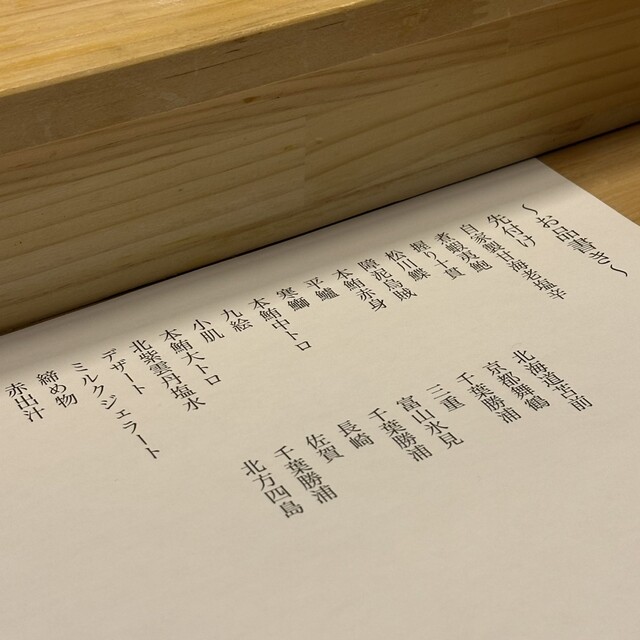 〜お品書き〜
先付け
自家製甘海老塩辛
煮蝦夷鮑
握り十貫
松川鰈 北海道苫前
障泥烏賊 京都舞鶴
本鮪赤身 千葉勝浦
平鱸 三重
寒鰤 富山氷見
本鮪中トロ 千葉勝浦
九絵 長崎
小肌 佐賀
本鮪大トロ 千葉勝浦
北紫雲丹塩水 北方四島
デザート
ミルクジェラート
締め物
赤出汁